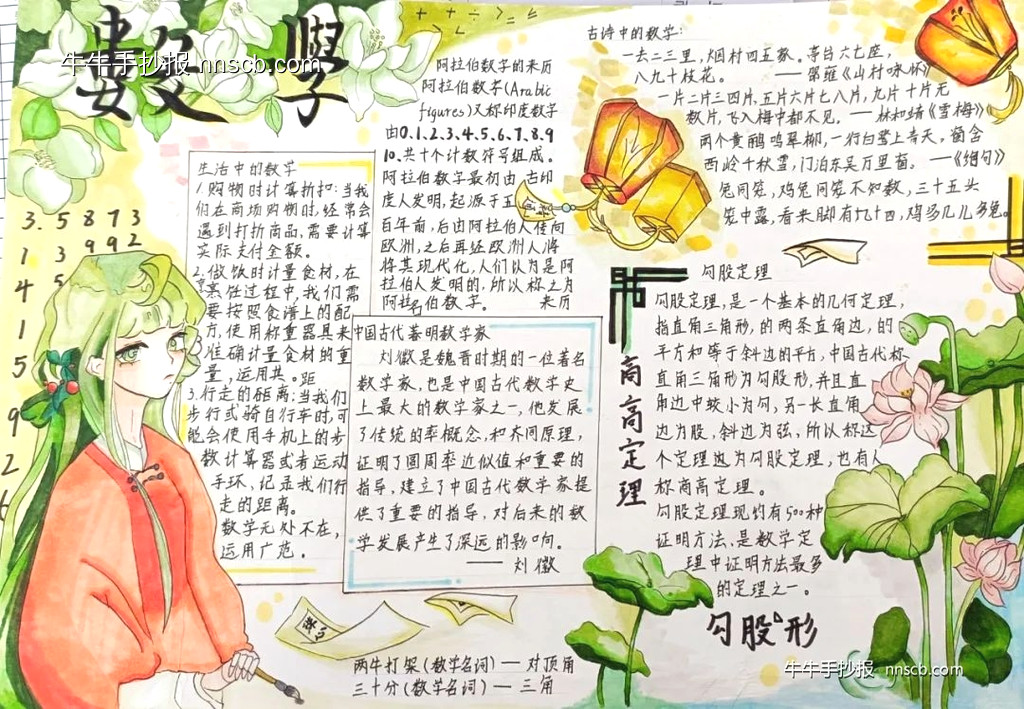 數學
牛牛手抄报 nnscb.com
+ + ÷ > = ≤
阿拉伯数字的来历
阿拉伯数字(Arabic
figures)又称印度数字
由0.1.2.3.4.5.6.7.8.9
10.共十个计数符号组成。
阿拉伯数字最初由古印
度人发明,起源于五
百年前,后由阿拉伯人传向
欧洲,之后再经欧洲人将
将其现代化,人们以为是阿
拉伯人发明的,所以称之为
阿拉伯数字。 来历
古诗中的数学:
一去二三里,烟村四五家。亭台六七座,
八九十枝花。 ——邵雍《山村咏怀》
一片二片三四片,五片六片七八片,九片十片无
数片,飞入梅中都不见。——林和靖《雪梅》
两个黄鹂鸣翠柳,一行白鹭上青天,窗含
西岭千秋雪,门泊东吴万里船。——《绝句》
兔同笼,鸡兔同笼不知数,三十五头
笼中露,看来脚有九十四,鸡多几儿多兔。
生活中的数学
1.购物时计算折扣:当我
们在商场购物时,经常会
遇到打折商品,需要计算
实际支付金额。
2.做饭时计量食材,在
烹饪过程中,我们需
要按照食谱上的配
方,使用称重器具来
准确计量食材的重
量,运用共。距
3.行走的距离:当我们
步行或骑自行车时,可
能会使用手机上的步
数计算器或者运动
手环,记录我们行
走的距离。
数学无处不在,
运用广范。
3.5873
1 3 992
4 5
1
5
9
2
6
中国古代著明数学家
刘徽是魏晋时期的一位著名
数学家,也是中国古代数学史
上最大的数学家之一,他发展
了传统的率概念,和齐同原理,
证明了圆周率近似值和重要的
指导,建立了中国古代数学家提
供了重要的指导,对后来的数
学发展产生了深远的影响。
——刘徽
勾股定理
勾股定理,是一个基本的几何定理,
指直角三角形,的两条直角边,的
平方和等于斜边的平方,中国古代称
直角三角形为勾股形,并且直
角边中较小为勾,另一长直角
边为股,斜边为弦,所以称这
个定理边为勾股定理,也有人
称商高定理。
勾股定理现约有500种
证明方法,是数学定
理中证明方法最多
的定理之一。
商高定理
勾股形
数学
两牛打架(数学名词)—对顶角
三十分(数学名词)—三角
牛牛手抄报 nnscb.com